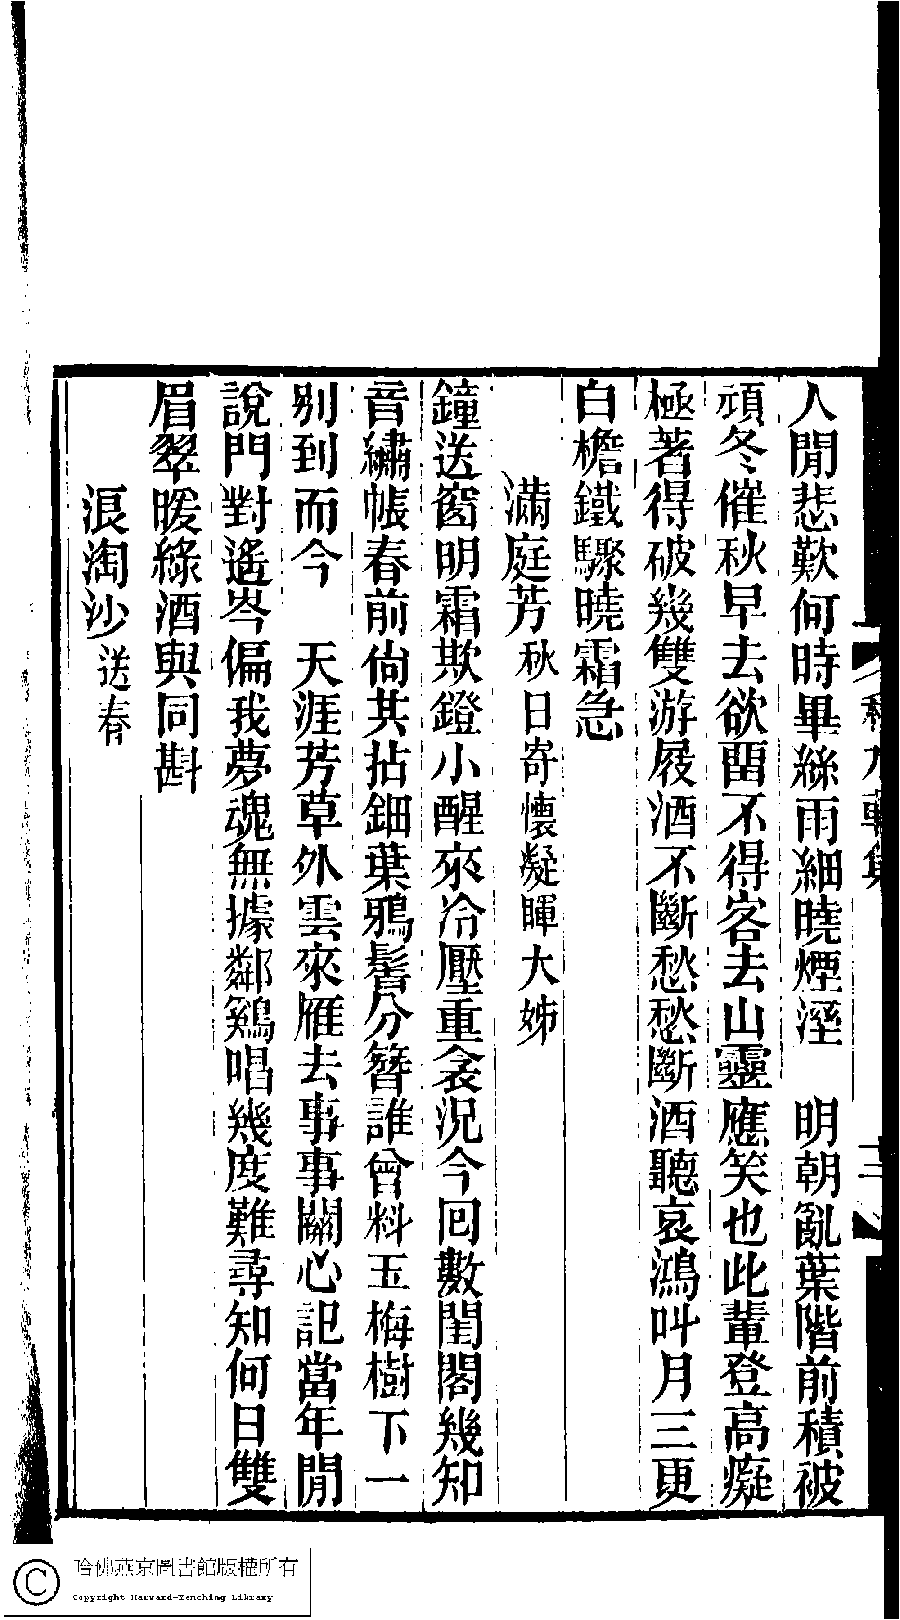 人閒悲歎何時畢絲雨細曉煙溼　明朝亂葉階前積被
頑冬催秋早去欲留不得客去山靈應笑也此輩登高癡
極著得破幾雙游屐酒不斷愁愁斷酒聽哀鴻叫月三更
白檐鐵驟曉霜急
滿庭芳秋日寄懷凝暉大姊
鐘送窗明霜欺鐙小醒來冷壓重衾況今回數閨閣幾知
音繡帳春前尙共拈鈿葉鴉鬢分簪誰曾料玉梅樹下一
別到而今　天涯芳草外雲來雁去事事關心記當年閒
說門對遙岑偏我夢魂無據鄰鷄唱幾度難尋知何日雙
眉翠暖綠酒與同斟
浪淘沙送春
哈佛燕京圖書館版權所有
Copyright Harvard-Yenching Library